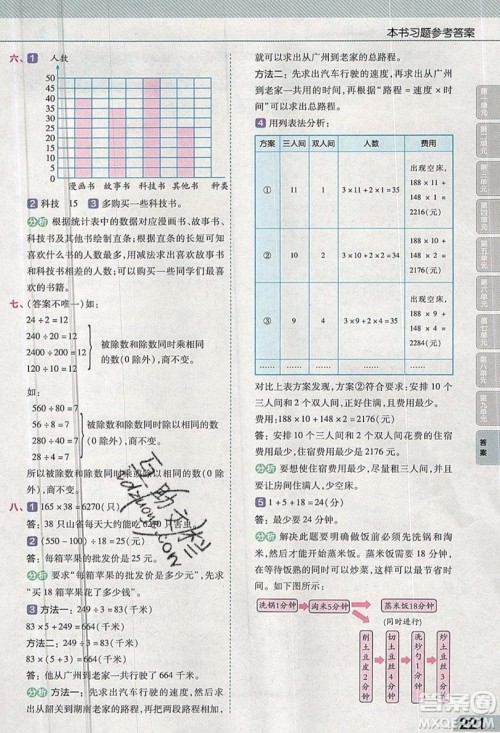 本书习题参考答案
六、1 人数
50
45
40
35
30
25
20
15
10
5
0
漫画书 故事书 科技书 其他书 种类
2 科技 15 3 多购买一些科技书。
分析 根据统计表中的数据对应漫画书、故事书、
科技书及其他书绘制直条；根据直条的长短可知喜欢
什么书的人数最多，用减法求出喜欢故事书的人数
和科技书相差的人数；可以购买一些同学们最喜欢
的书籍。
七、(答案不唯一)如：
24÷2=12
240÷20=12
2400÷200=12
120÷10=12
被除数和除数同时乘相同
的数(0除外)，商不变。
如：
560÷80=7
56÷8=7
280÷40=7
28÷4=7
被除数和除数同时除以相同的数
(0除外)，商不变。
所以被除数和除数同时乘或除以相同的数(0除
外)，商不变。
八、1 165×38=6270(只)
答：38只山雀每天大约能吃6270只害虫。
2 (550-100)÷18=25(元)
答：每箱苹果的批发价是25元。
分析 要求“每箱苹果的批发价是多少元”，先求“买
18箱苹果花了多少钱”。
3 方法一：249÷3=83(千米)
83×5+249=664(千米)
方法二：249÷3=83(千米)
83×(3+5)=664(千米)
答：他从广州到湖南老家一共行了664千米。
分析 方法一：先求出汽车行驶的速度，再求出
从韶关到湖南老家的路程，再把两段路程相加，
就可以求出从广州到老家的总路程。
方法二：先求出汽车行驶的速度，再求出从广州
到老家一共行驶的时间，再根据“路程=速度×时
间”，求出总路程。
4 用列表法分析：
方案 三人间 双人间 人数 费用
① 11 1 3×11+2×1=35 出现空床，
188×11+
148×1=
2216(元)
② 10 2 3×10+2×2=34 正好住满，
188×10+
148×2=
2176(元)
③ 9 4 3×9+2×4=35 出现空床，
188×9+
148×4=
2284(元)
对比上表方案发现，方案②符合要求，即安排10个
三人间和2个双人间，正好住满，没有空床，且
费用最少。188×10+148×2=2176(元)
答：安排10个三人间和2个双人间花的住宿
费用最少，最少住宿费用是2176元。
分析 要想使住宿费用最少，要尽量住三人间，并
且让房间没有空床。
5 1+5+18=24(分)
答：最少需要24分钟。
分析 解决此题要明确做饭前必须先洗锅和淘
米，然后才能蒸米饭。蒸米饭需要18分钟，在
等待饭熟的同时可以炒菜，这样最节省时间。
如下图所示：
洗锅1分钟 淘米5分钟 蒸米饭18分钟
(同时进行)
剥土豆皮2分钟
切土豆丝4分钟
洗炒勺1分钟
炒土豆丝5分钟
第一单元
第二单元
第三单元
第四单元
第五单元
第六单元
第七单元
第八单元
第九单元
答案
互助文栏
答案圈
MXQE.COM
221